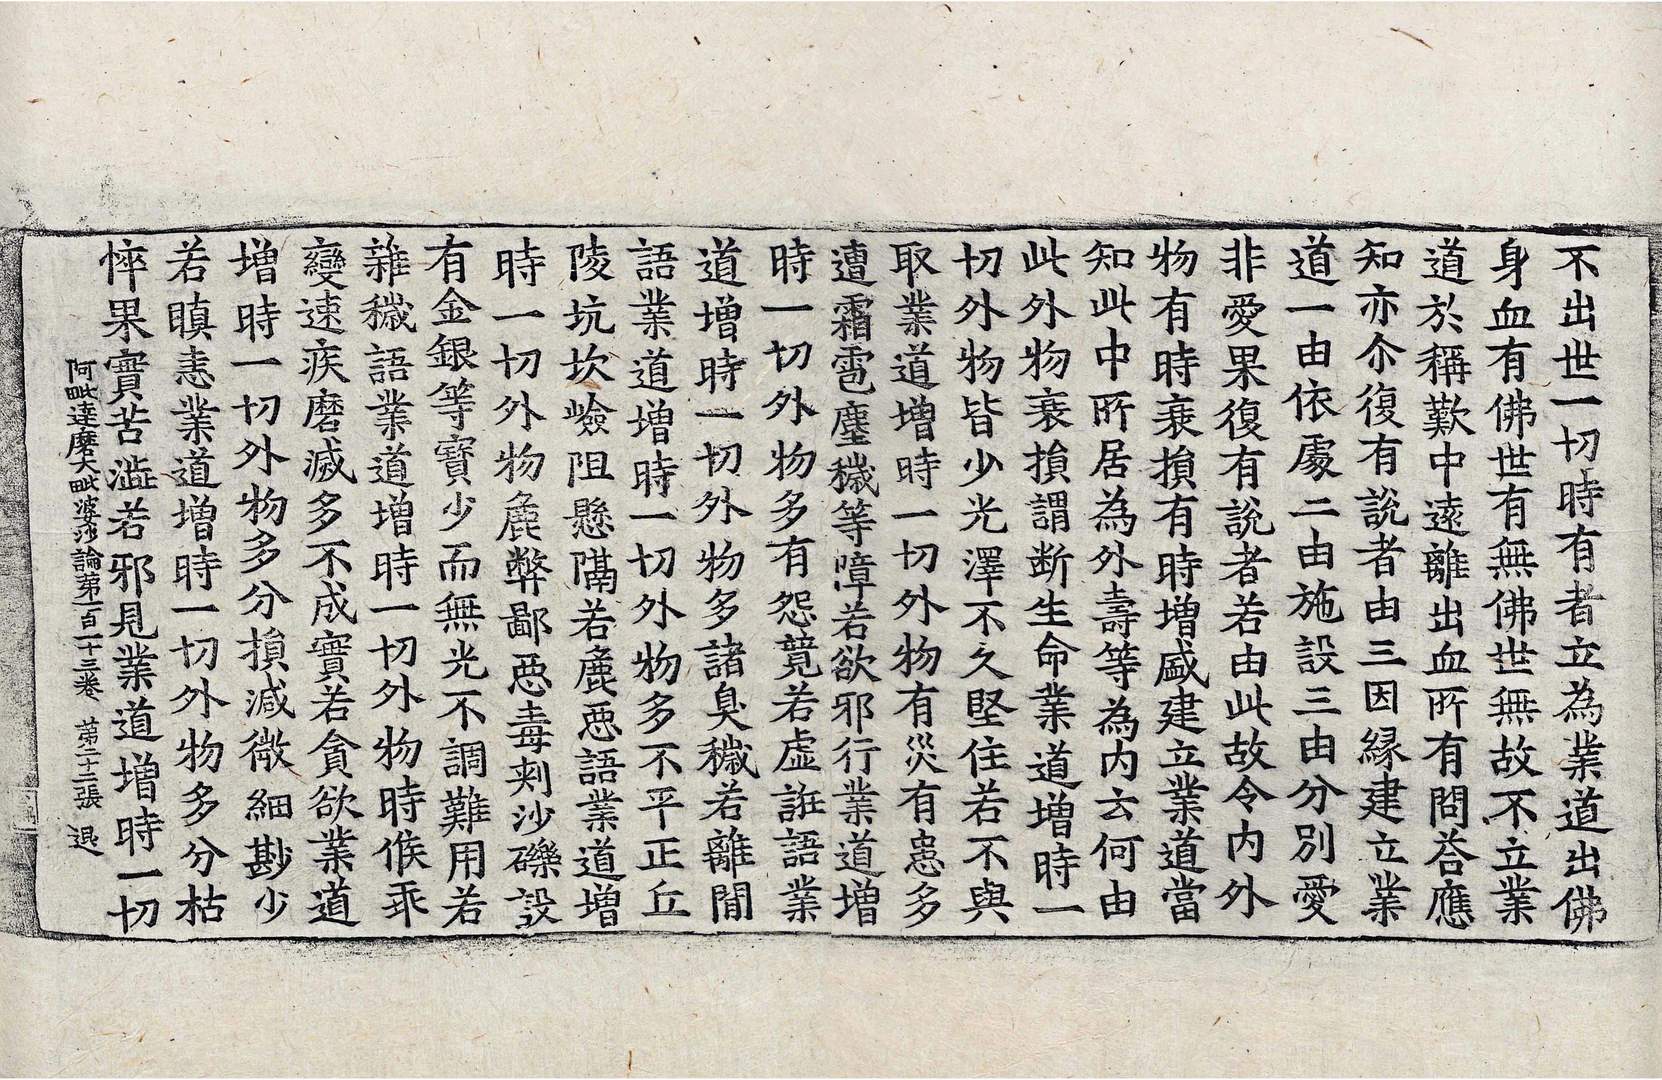 不出世一切時有者立為業道出佛
身血有佛世有無佛世無故不立業
道於稱歎中遠離出血所有問荅應
知亦尒復有說者由三因縁建立業
道一由依處二由施設三由分別愛
非愛果復有說者若由此故令內外
物有時衰損有時增盛建立業道當
知此中所居為外壽等為內云何由
此外物衰損謂断生命業道增時一
切外物皆少光澤不久堅住若不與
取業道增時一切外物有災有患多
遭霜雹塵穢等障若欲邪行業道增
時一切外物多有怨競若虛誑語業
道增時一切外物多諸臭穢若離間
語業道增時一切外物多不平正丘
陵坑坎嶮阻懸隔若麁惡語業道增
時一切外物麁弊鄙惡毒刺沙礫設
有金銀等寶少而無光不調難用若
雜穢語業道增時一切外物時候乖
變速疾磨滅多不成實若貪欲業道
增時一切外物多分損減微細尠少
若瞋恚業道增時一切外物多分枯
悴果實苦澁若邪見業道增時一切
阿毗達磨大毗婆沙論苐一百一十三卷 苐二十二張 退